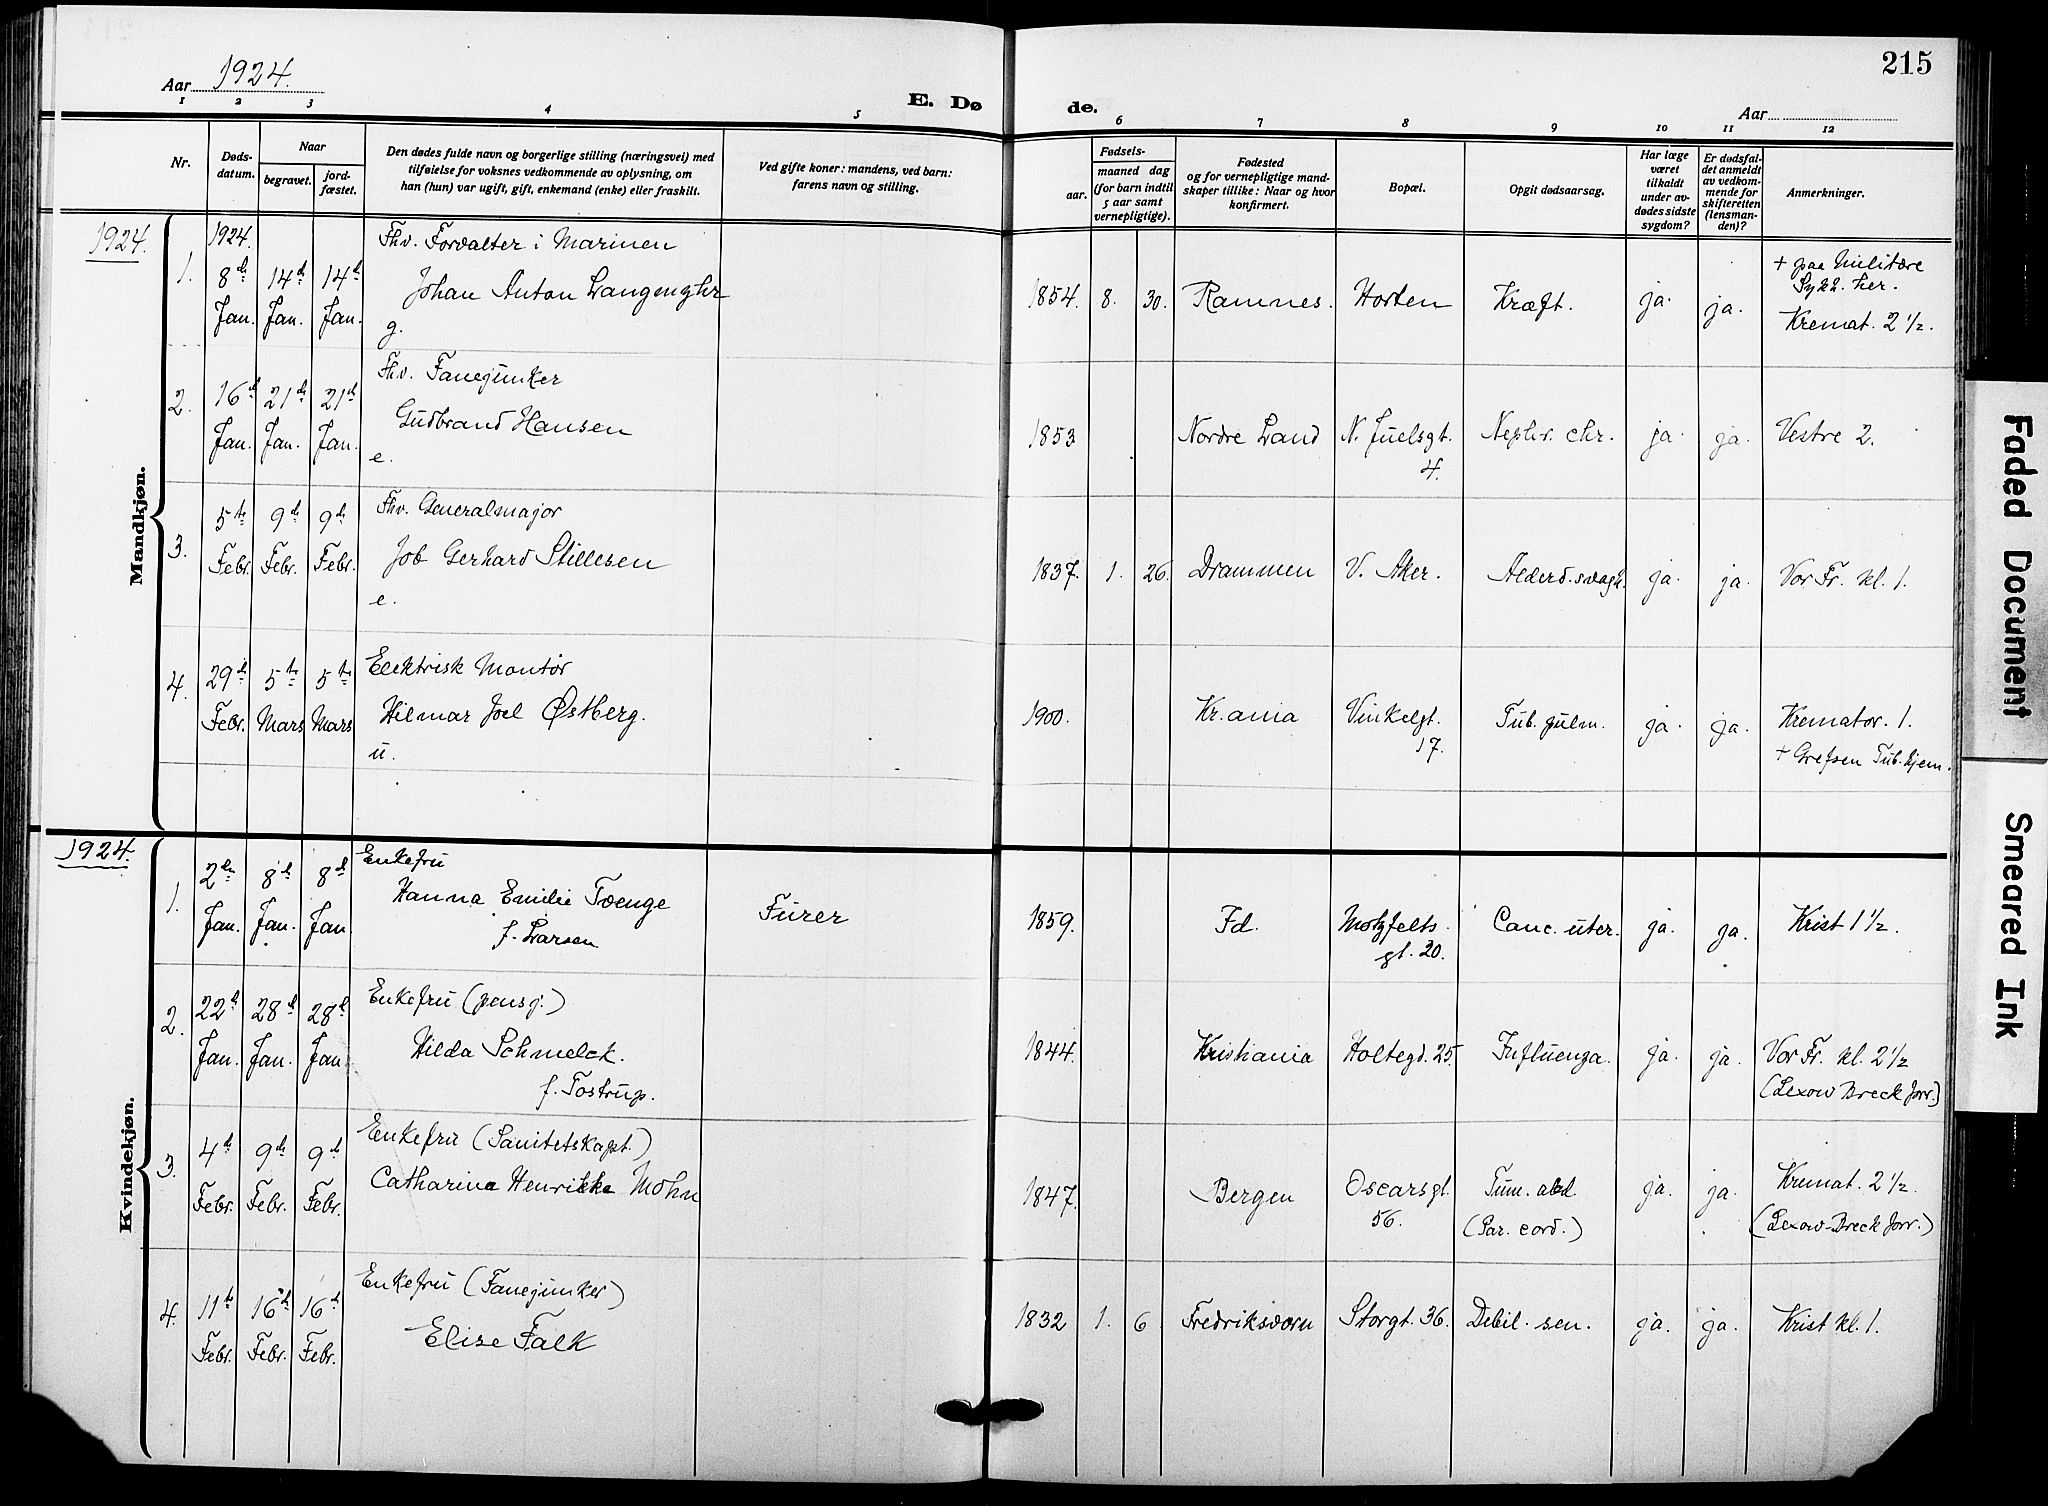 215
Aar 1924.
E. Dø de.
Aar
1 2 3 4 5 6 7 8 9 10 11 12
Nr.
Døds-
datum.
Naar
begravet.
jord-
fæstet.
Den dødes fulde navn og borgerlige stilling (næringsvei) med
tilføielse for voksnes vedkommende av oplysning, om
han (hun) var ugift, gift, enkemand (enke) eller fraskilt.
Ved gifte koner: mandens, ved barn:
farens navn og stilling.
Fødsels-
aar.
maaned dag
(for barn indtil
5 aar samt
vernepligtige).
Fødested
og for vernepligtige mand-
skaper tillike: Naar og hvor
konfirmert.
Bopæl.
Opgit dødsaarsag.
Har læge
været
tilkaldt
under av-
dødes sidste
sygdom?
Er dødsfal-
det anmeldt
av vedkom-
mende for
skifteretten
(lensman-
den)?
Anmerkninger.
Mandkjøn.
1924.
1924.
1. 8de Jan. 14de Jan. 14de Jan.
Fhv. Forvalter i Marinen
Johan Anton Langenghr
g.
1854. 8. 30. Ramnes. Horten Kræft. ja. ja.
+ paa Militære
Sykh. her.
Kremat. 2 1/2.
2. 16de Jan. 21de Jan. 21de Jan.
Fhv. Fanejunker
Gudbrand Hansen
e.
1853 Nordre Land N. Juelsgt.
4.
Nephr. chr. ja. ja. Vestre 2.
3. 5te Febr. 9de Febr. 9de Febr.
Fhv. Generalmajor
Job Gerhard Stillesen
e.
1837. 1. 26. Drammen V. Aker. Alderd.svagh. ja. ja. Vor Fr. kl. 1.
4. 29de Febr. 5te Mars 5te Mars
Elektrisk Montør
Hilmar Joel Østberg.
u.
1900. Kr.ania Vinkelgt.
17.
Tub. pulm. ja. ja. Kremator. 1.
+ Grefsen Tub. hjem.
Kvindekjøn.
1924.
1. 2den Jan. 8de Jan. 8de Jan
Enkefru
Hanna Emilie Tvenge
f. Larsen
Furer
1859. Fd. Motzfelts
gt. 20.
Canc. uter. ja. ja. Krist 1 1/2.
2. 22de Jan. 28de Jan. 28de Jan
Enkefru (pensj.)
Hilda Schmelck.
f. Tostrup.
1844. Kristiania Holtegd. 25. Influenza. ja. ja. Vor Fr. kl. 2 1/2
(Lexow Breck forr.)
3. 4de Febr. 9de Febr. 9de Febr.
Enkefru (Sanitetskapt.)
Catharina Henrikke Mohn
1847. Bergen Oscarsgt.
56.
Tum. abd.
(Par. cord.)
ja. ja. Kremat. 2 1/2.
(Lexow-Breck forr.)
4. 11te Febr. 16de Febr. 16de Febr.
Enkefru (Fanejunker)
Elise Falk
1832 1. 6. Fredriksværn Storgt. 36. Debil. sen. ja. ja. Krist kl. 1.
Faded Document
Smeared Ink